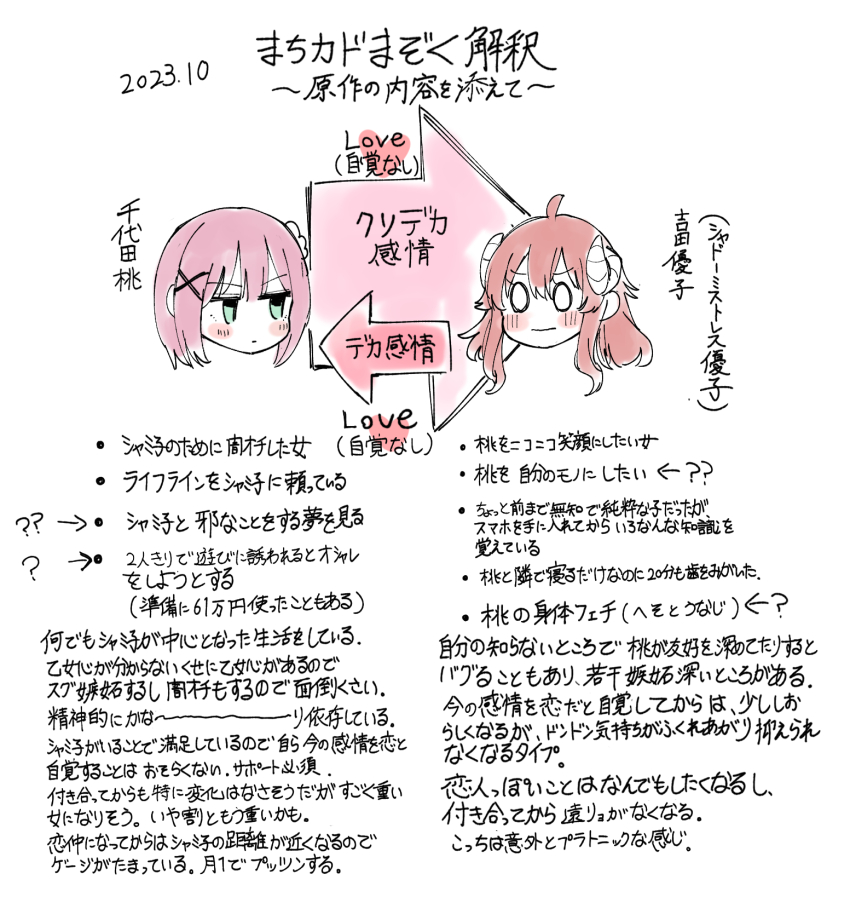 まちカドまぞく解釈
2023.10
〜原作の内容を添えて〜
Love
(自覚なし)
クソデカ
感情
千代田桃
吉田優子
(シャドーミストレス優子)
デカ感情
Love
(自覚なし)
• シャミ子のために闇オチした女
• ライフラインをシャミ子に頼っている
?? → • シャミ子と邪なことをする夢を見る
? → • 2人きりで遊びに誘われるとオシャレ
をしようとする
(準備に61万円使ったこともある)
何でもシャミ子が中心となった生活をしている.
乙女心が分からないくせに乙女心があるので
スグ嫉妬するし闇オチもするので面倒くさい.
精神的にかな〜り依存している.
シャミ子がいることで満足しているので自ら今の感情を恋と
自覚することはおそらくない.サポート必須.
付き合ってからも特に変化はなさそうだがすごく重い
女になりそう。いや割ともう重いかも.
恋仲になってからはシャミ子の距離が近くなるので
ゲージがたまっている。月1でプッツンする.
• 桃をニコニコ笑顔にしたい女
• 桃を自分のモノにしたい ← ??
• ちょっと前まで無知で純粋な子だったが、
スマホを手に入れてからいろんな知識を
覚えている
• 桃と隣で寝るだけなのに20分も歯をみがいた.
• 桃の身体フェチ(へそとうなじ) ← ?
自分の知らないところで桃が友好を深めてたりすると
バグることもあり、若干嫉妬深いところがある.
今の感情を恋だと自覚してからは、少ししお
らしくなるが、ドンドン気持ちがふくれあがり抑えられ
なくなるタイプ。
恋人っぽいことはなんでもしたくなるし、
付き合ってから遠リョがなくなる.
こっちは意外とプラトニックな感じ。